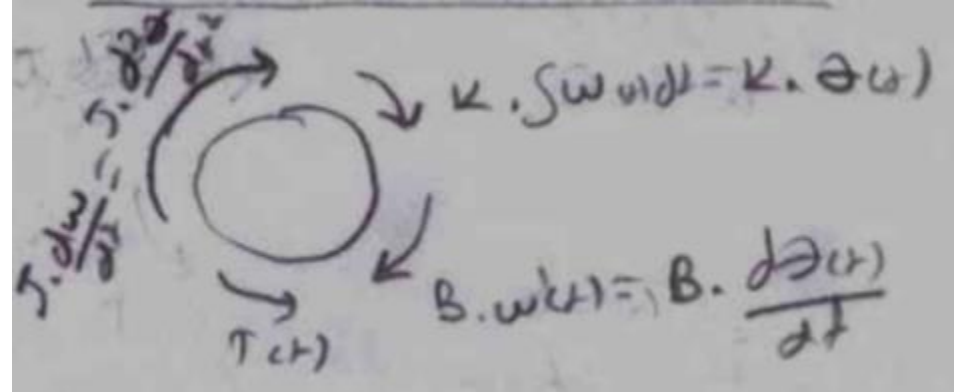 J. dω/dt = J. d²∂/dt²
K. ∫ω(t)dt = K. ∂(t)
B. ω(t) = B. d∂(t)/dt
T(t)